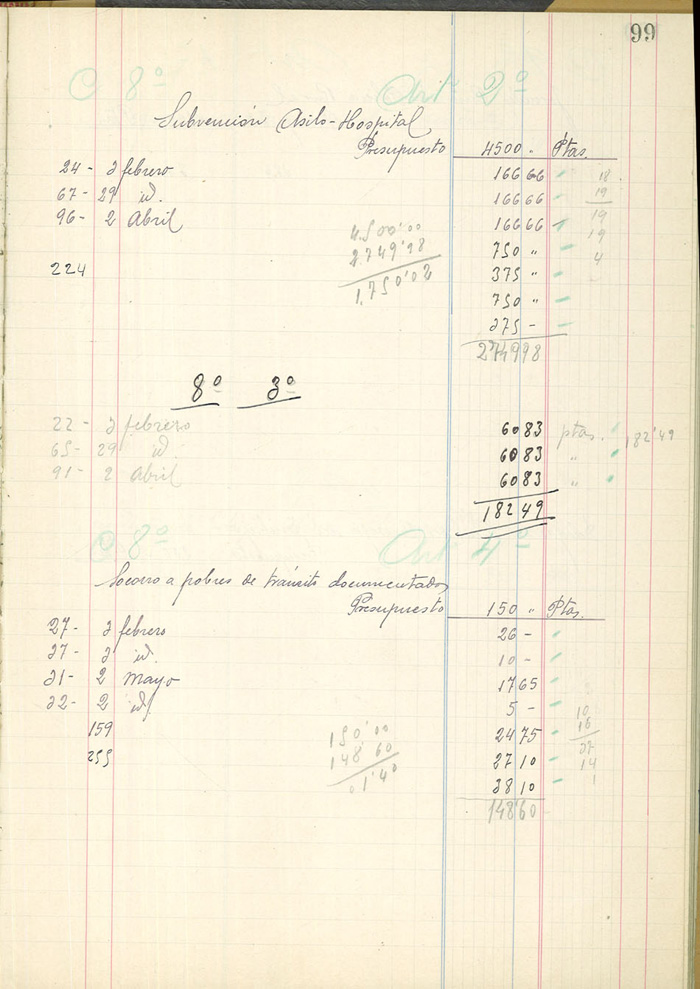 99
C 8º Artº 2º
Subvención Asilo-Hospital
Presupuesto 4500 " Ptas.
24 - 3 febrero 166 66 " 18
67 - 29 id. 166 66 " 19
96 - 2 Abril 166 66 " 19
4.500'00 19
2.749'98 750 " " 4
224 1.750'02 375 " "
750 " "
375 - "
2749 98
8º 3º
22 - 3 febrero 60 83 ptas. " 182'49
65 - 29 id. 60 83 " "
91 - 2 Abril 60 83 " "
182 49
C 8º Artº 4º
Socorro a pobres de tránsito documentados
Presupuesto 150 " Ptas.
27 - 3 febrero 26 - "
37 - 3 id. 10 - "
31 - 2 Mayo 17 65 "
32 - 2 id. 5 - " 10
159 150'00 24 75 " 16
255 148'60 27 10 " 37
01'40 38 10 " 14
1
148'60